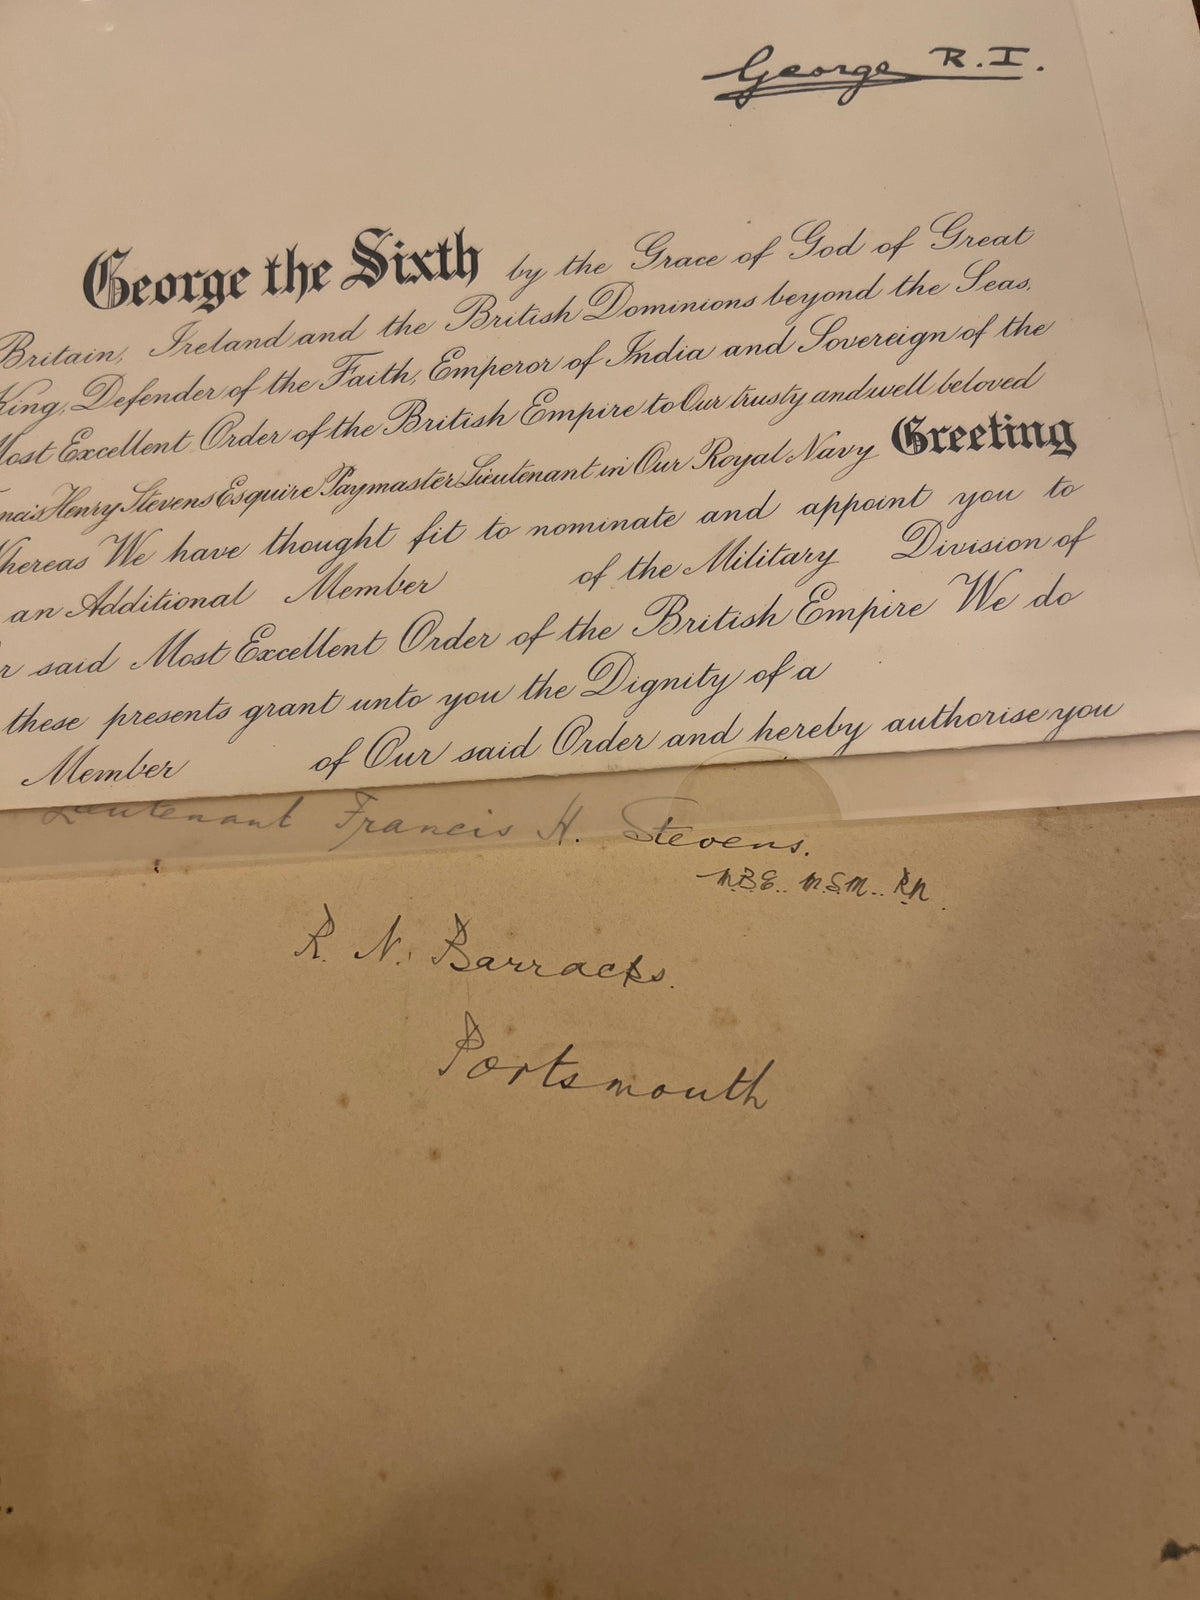 George R.I.
George the Sixth by the Grace of God of Great
Britain, Ireland and the British Dominions beyond the Seas,
King, Defender of the Faith, Emperor of India and Sovereign of the
Most Excellent Order of the British Empire to Our trusty and well beloved
ncis Henry Stevens Esquire Paymaster Lieutenant in Our Royal Navy Greeting
Whereas We have thought fit to nominate and appoint you to
an Additional Member of the Military Division of
r said Most Excellent Order of the British Empire We do
these presents grant unto you the Dignity of a
Member of Our said Order and hereby authorise you
Lieutenant Francis H. Stevens.
M.B.E.. M.S.M.. R.N.
R. N. Barracks.
Portsmouth